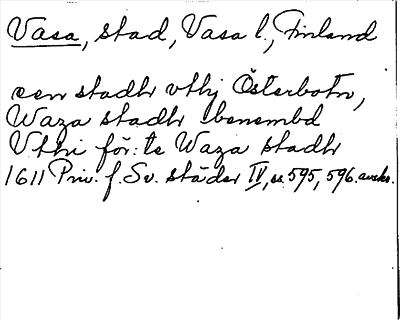 Vasa, stad, Vasa l., Finland
een stadh vthj Österbotn,
Waza stadh benembd
Vthi för:te Waza stadh
1611 Priv. f. Sv. städer IV, ss. 595, 596. avskr.